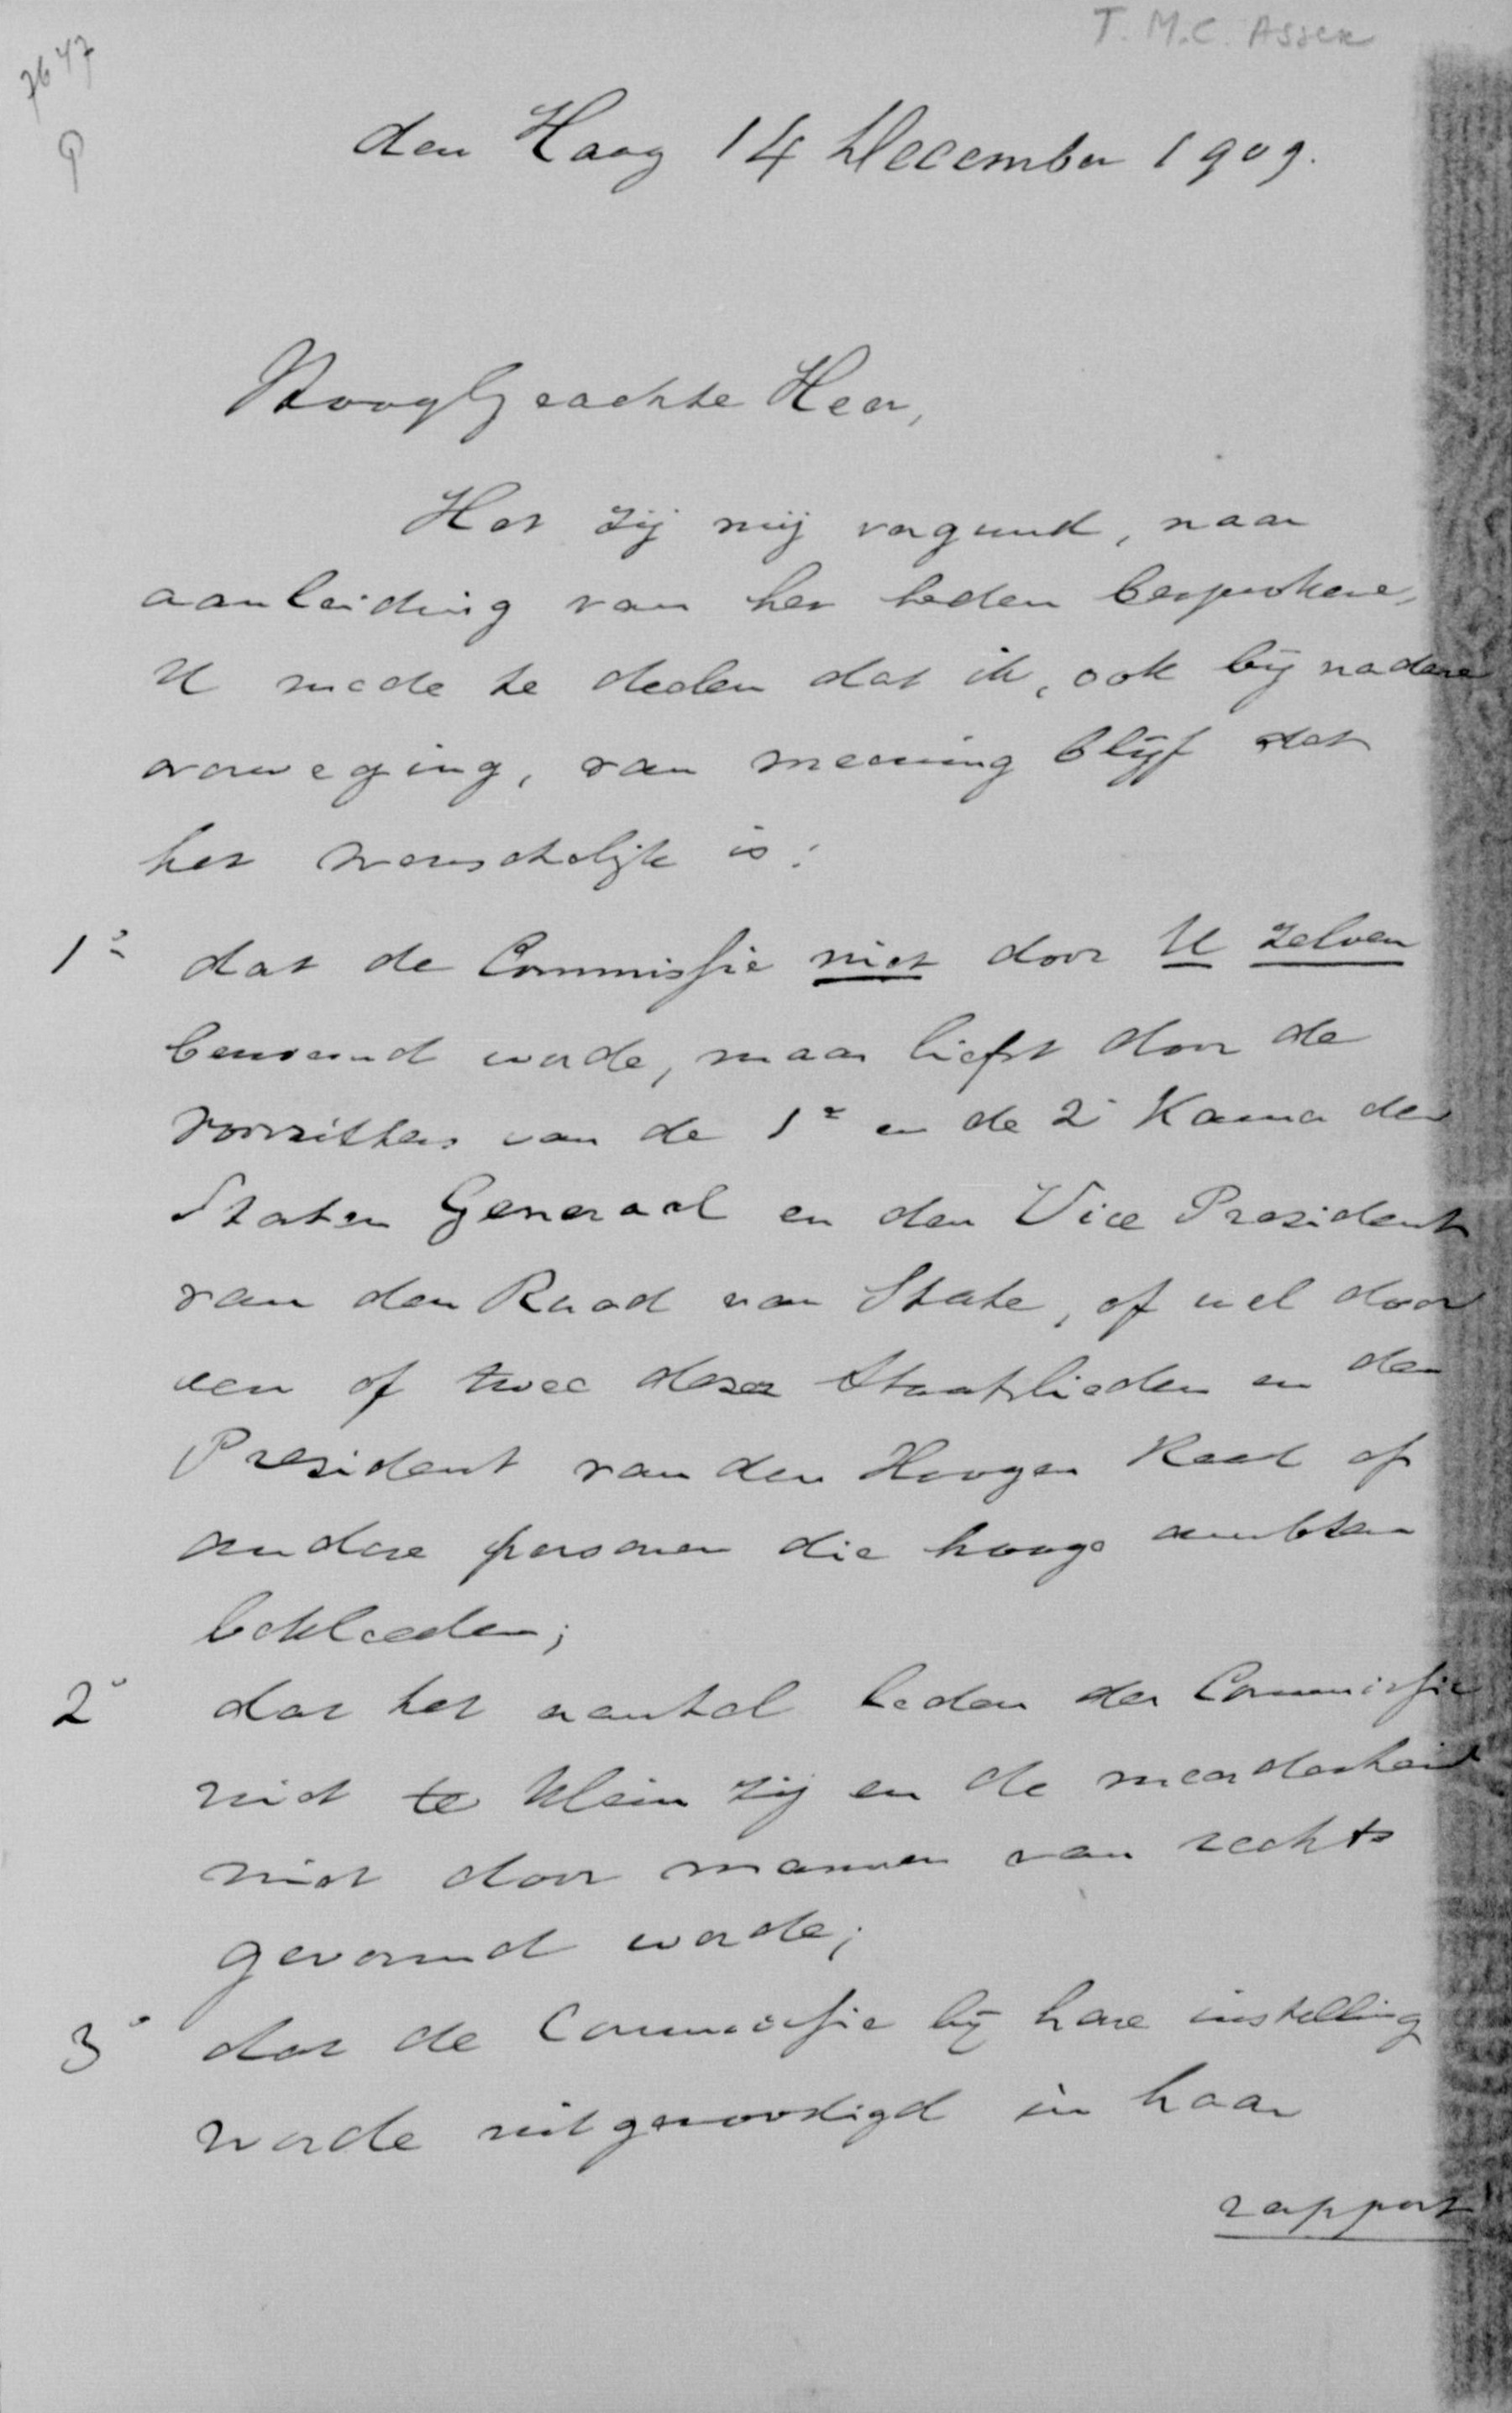 T. M. C. Asser
7647
den Haag 14 December 1909.
HoogGeachte Heer,
Het zij mij vergund, naar
aanleiding van het heden besprokene,
U mede te deelen dat ik, ook bij nadere
overweging, van meening blijf dat
het wenschelijk is:
1° dat de Commissie niet door U zelven
benoemd worde, maar liefst door de
voorzitters van de 1e en de 2e Kamer der
Staten Generaal en den Vice President
van den Raad van State, of wel door
een of twee dezer Staatslieden en den
President van den Hoogen Raad of
andere personen die hooge ambten
bekleeden;
2° dat het aantal leden der Commissie
niet te klein zij en de meerderheid
niet door mannen van rechts
gevormd worde;
3° dat de Commissie bij hare instelling
worde uitgenoodigd in haar
rapport